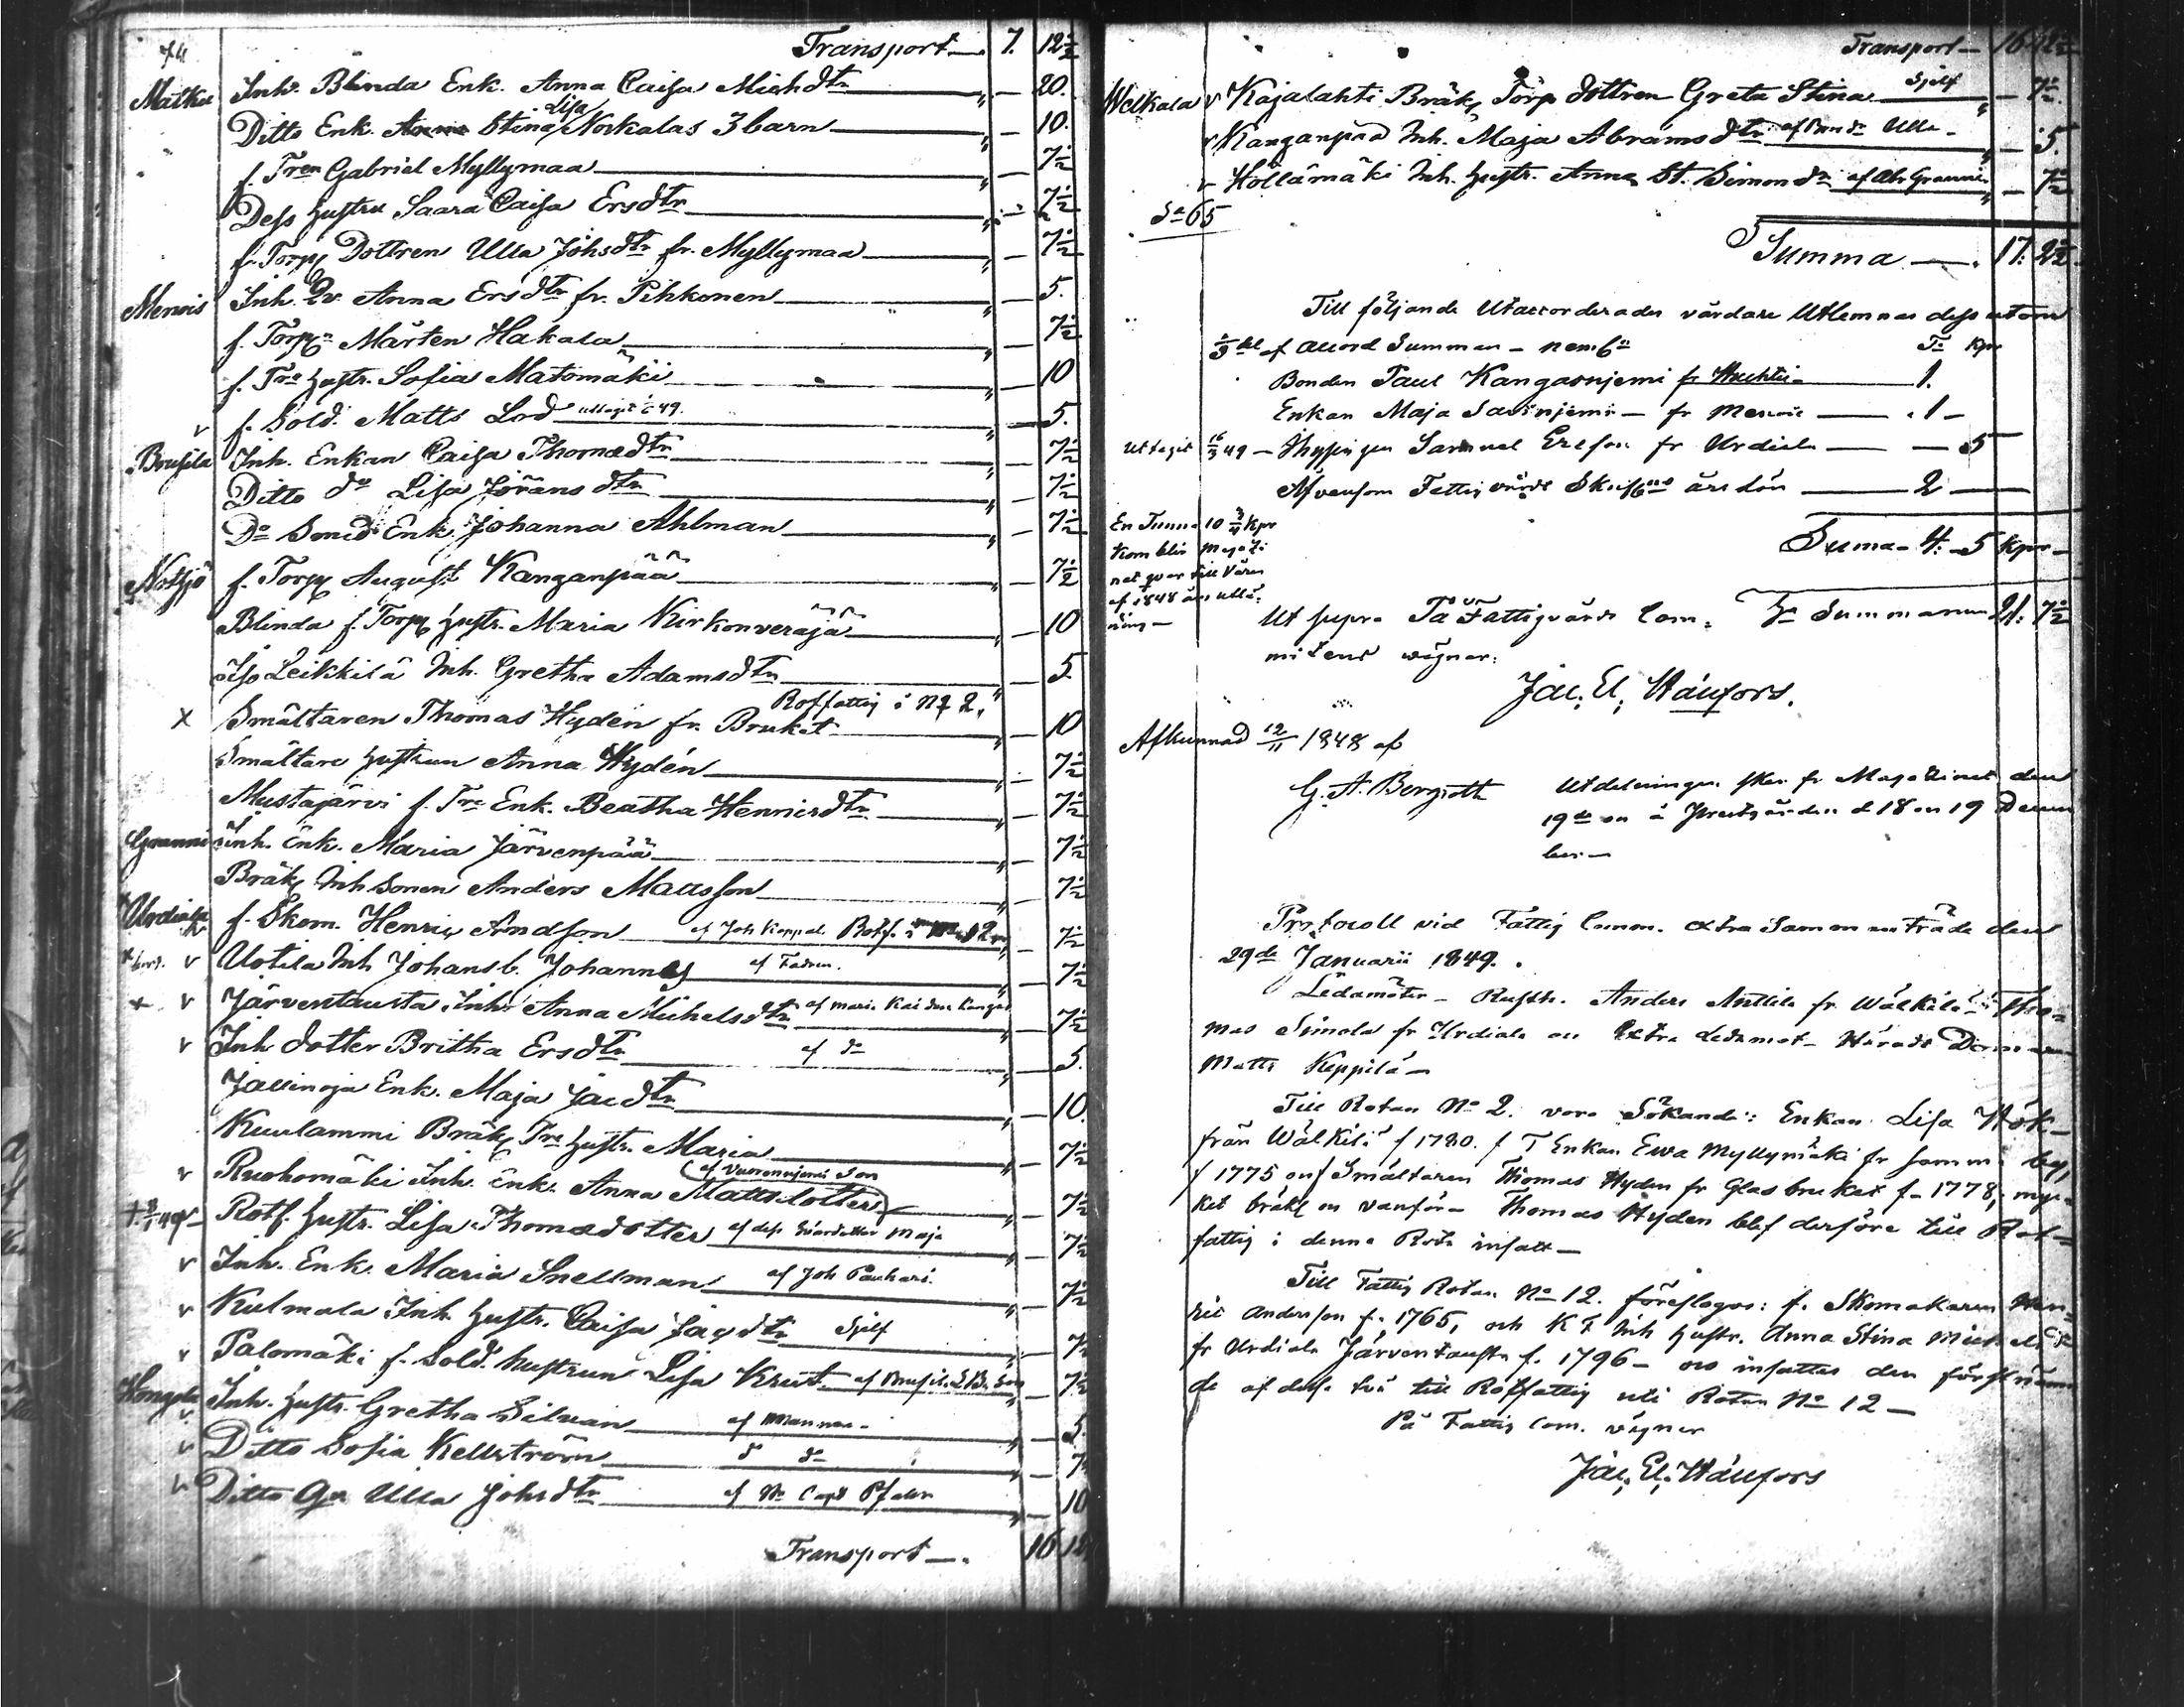 74
Transport — 7. 12½
Matku Inh. Blinda Enk. Anna Caisa Michdtr „ — 20.
Lisa
Ditto Enk. Anna Stina Norkalas 3 barn „ — 10.
f. Tren Gabriel Myllymaa „ — 7½
Dess hustru Saara Caisa Ersdtr „ — 7½
f. Torp Dottren Ulla Johsdtr fr. Myllymaa „ — 7½
Menois Inh. Qv. Anna Ersdtr fr. Pihkonen „ — 5.
f. Torp Mårten Hakala „ — 7½
f. Trs hustr. Sofia Matomäki „ — 10
v f. Sold. Matts Lod uttagit 49. — 5.
Brusila Inh. Enkan Caisa Thomædtr „ — 7½
Ditto do Lisa Jöransdtr „ — 7½
Do Smed Enk. Johanna Ahlman „ — 7½
Notsjö f. Torp August Kanganpää „ — 7½
Blinda f. Torp hustr. Maria Kirkonveräjä „ — 10
Iso Leikkilä Inh. Gretha Adamsdtr „ — 5.
Rotfattig i No 2.
x Smältaren Thomas Hydén fr. Bruket „ — 10
Smältare hustrun Anna Hydén „ — 7½
Mustajärvi f. Trs Enk. Beatha Henricsdtr „ — 7½
Grannis Inh. Enk. Maria Järvenpää „ — 7½
Bräkl Inh Sonen Anders Mattsson „ — 7½
Urdiala f. Skom. Henric Andsson af Joh Keppel. Rotf. i No 12 „ 7½
v Uotila Inh Johans b. Johannes af Fadren. „ 7½
+ v Järventausta Inh. Anna Michelsdtr af Maria „ 7½
v Inh dotter Britha Ersdtr af do „ — 5.
Jallinoja Enk. Maja Jacdtr „ — 10.
Kuulammi Bräkl Trs hustr. Maria „ — 7½
af Vuorenniemi Son
v Ruohomäki Inh. Enk. Anna Mattsdotter „ 7½
Rotf. hustr. Lisa Thomædotter af dess Svärdotter Maja „ 7½
v Inh. Enk. Maria Snellman af Joh Pauhari. „ 7½
v Kulmala Inh. hustr. Caisa Jacsdtr Sjelf „ 7½
v Palomäki f. Sold. hustrun Lisa Krut af Brusila „ — 7½
Hongola v Inh. hustr. Gretha Silvan af Mannen. „ — 5.
v Ditto Sofia Kellström d do „ — 7
v Ditto Qv Ulla Johsdtr af Hr Capt „ — 10
Transport — . 16 12
Transport — 16 12½
Welkala v Kajalahti Bräkl Torp dottren Greta Stina Sjelf „ — 7½
v Kanganpää Inh. Maja Abramsdtr Ulla „ — 5.
v Höllämäki Inh. hustr. Anna St. Simonsdr „ — 7½
Sa 65
Summa — . 17. 2½
Till följande Utaccorderades vårdare Utlemnas dess utom
⅔ del af accord Summan — neml. Tr Kpr
Bonden Paul Kangasniemi fr 1.
Enkan Maja Savinjemi — fr Menois — 1 —
uttagit 49 — Samuel Ersson fr Urdiala — — 5
Äfvensom Fattigvårds årslön — 2 —
Suma — 4. — 5 Kpr —
En Tunna 10 ¾ kpr
kom blir Magazi
net qvar till Våren
af 1848 års utlå-
ning —
Ut supra På Fattigvårds Com- Summarum 21. 7½
mitens vägnar:
Jac. El. Wånfors.
Afkunnad 12/11 1848 af
G. A. Bergroth
Utdelningen sker fr Magazinet den
19de on å Prestgården d 18 on 19 Decem
ber. —
Protocoll vid Fattig Comm. extra Sammanträde den
29de Januarii 1849.
Ledamöter — Rusth. Anders Anttila fr Wälkilä Tho-
mas Simola fr Urdiala on Extra Ledamot — Härads Domaren
Matts Keppilä —
Till Rotan No 2. voro Sökande: Enkan Lisa Hök —
från Wälkilä f 1780. f T Enkan Ewa Myllymäki fr samma by,
f 1775 on f Smältaren Thomas Hyden fr Glasbruket f — 1778, myc-
ket bräkl on vanför — Thomas Hyden blef derföre till Rot-
fattig i denna Rote infatt —
Till Fattig Rotan No 12. föreslogos: f. Skomakaren Hen-
ric Andersson f. 1765, och Inh hustr. Anna Stina
fr Urdiala Järventausta f. 1796 — on infattes den förstnäm-
de af desse två till Rotfattig uti Rotan No 12 —
På Fattig Com. vägnar
Jac. El. Wånfors